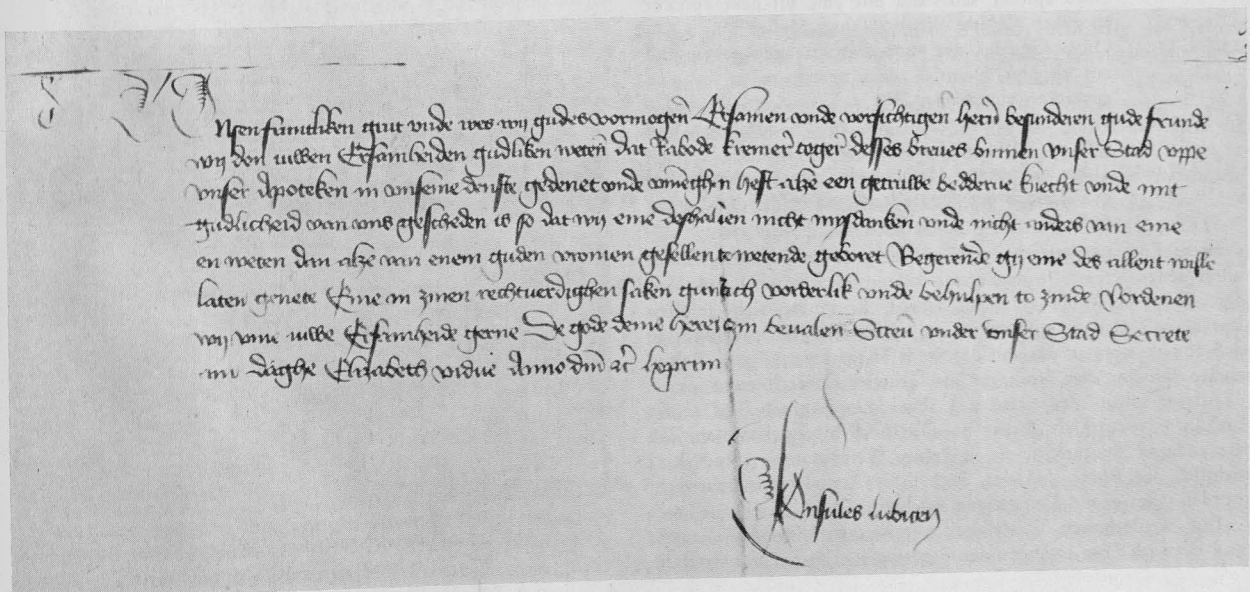 Unsen fruntliken grut unde wes wij gudes vormogen̄ Ersamen unde vorsichtigen hern̄ besunderen gude frunde
wij don iuwen Ersamheiden gudliken weten̄ dat Rabode kremer̄ toger̄ desses breves bynnen unser Stad uppe
unser Apoteken in unseme denste gedenet unde heft alze een getruwe bedderve knecht unde mit
gudlicheid van uns gescheden is so dat wij eme nicht mysdanken unde nicht anders van eme
en weten dan alze van enem guden vromen gesellen to wetende geboret Begeren̄de gij eme des allent wille
laten genete Eme in zinen rechtverdighen saken gunstich vorderlik unde behulpen to zinde Vordenen
wij umme iuwe Ersamheide gerne De gode deme heren zin bevalen Scr̄ under unser Stad Secrete
am daghe Elizabeth vidue Anno dn̄i
Consules lubicen̄